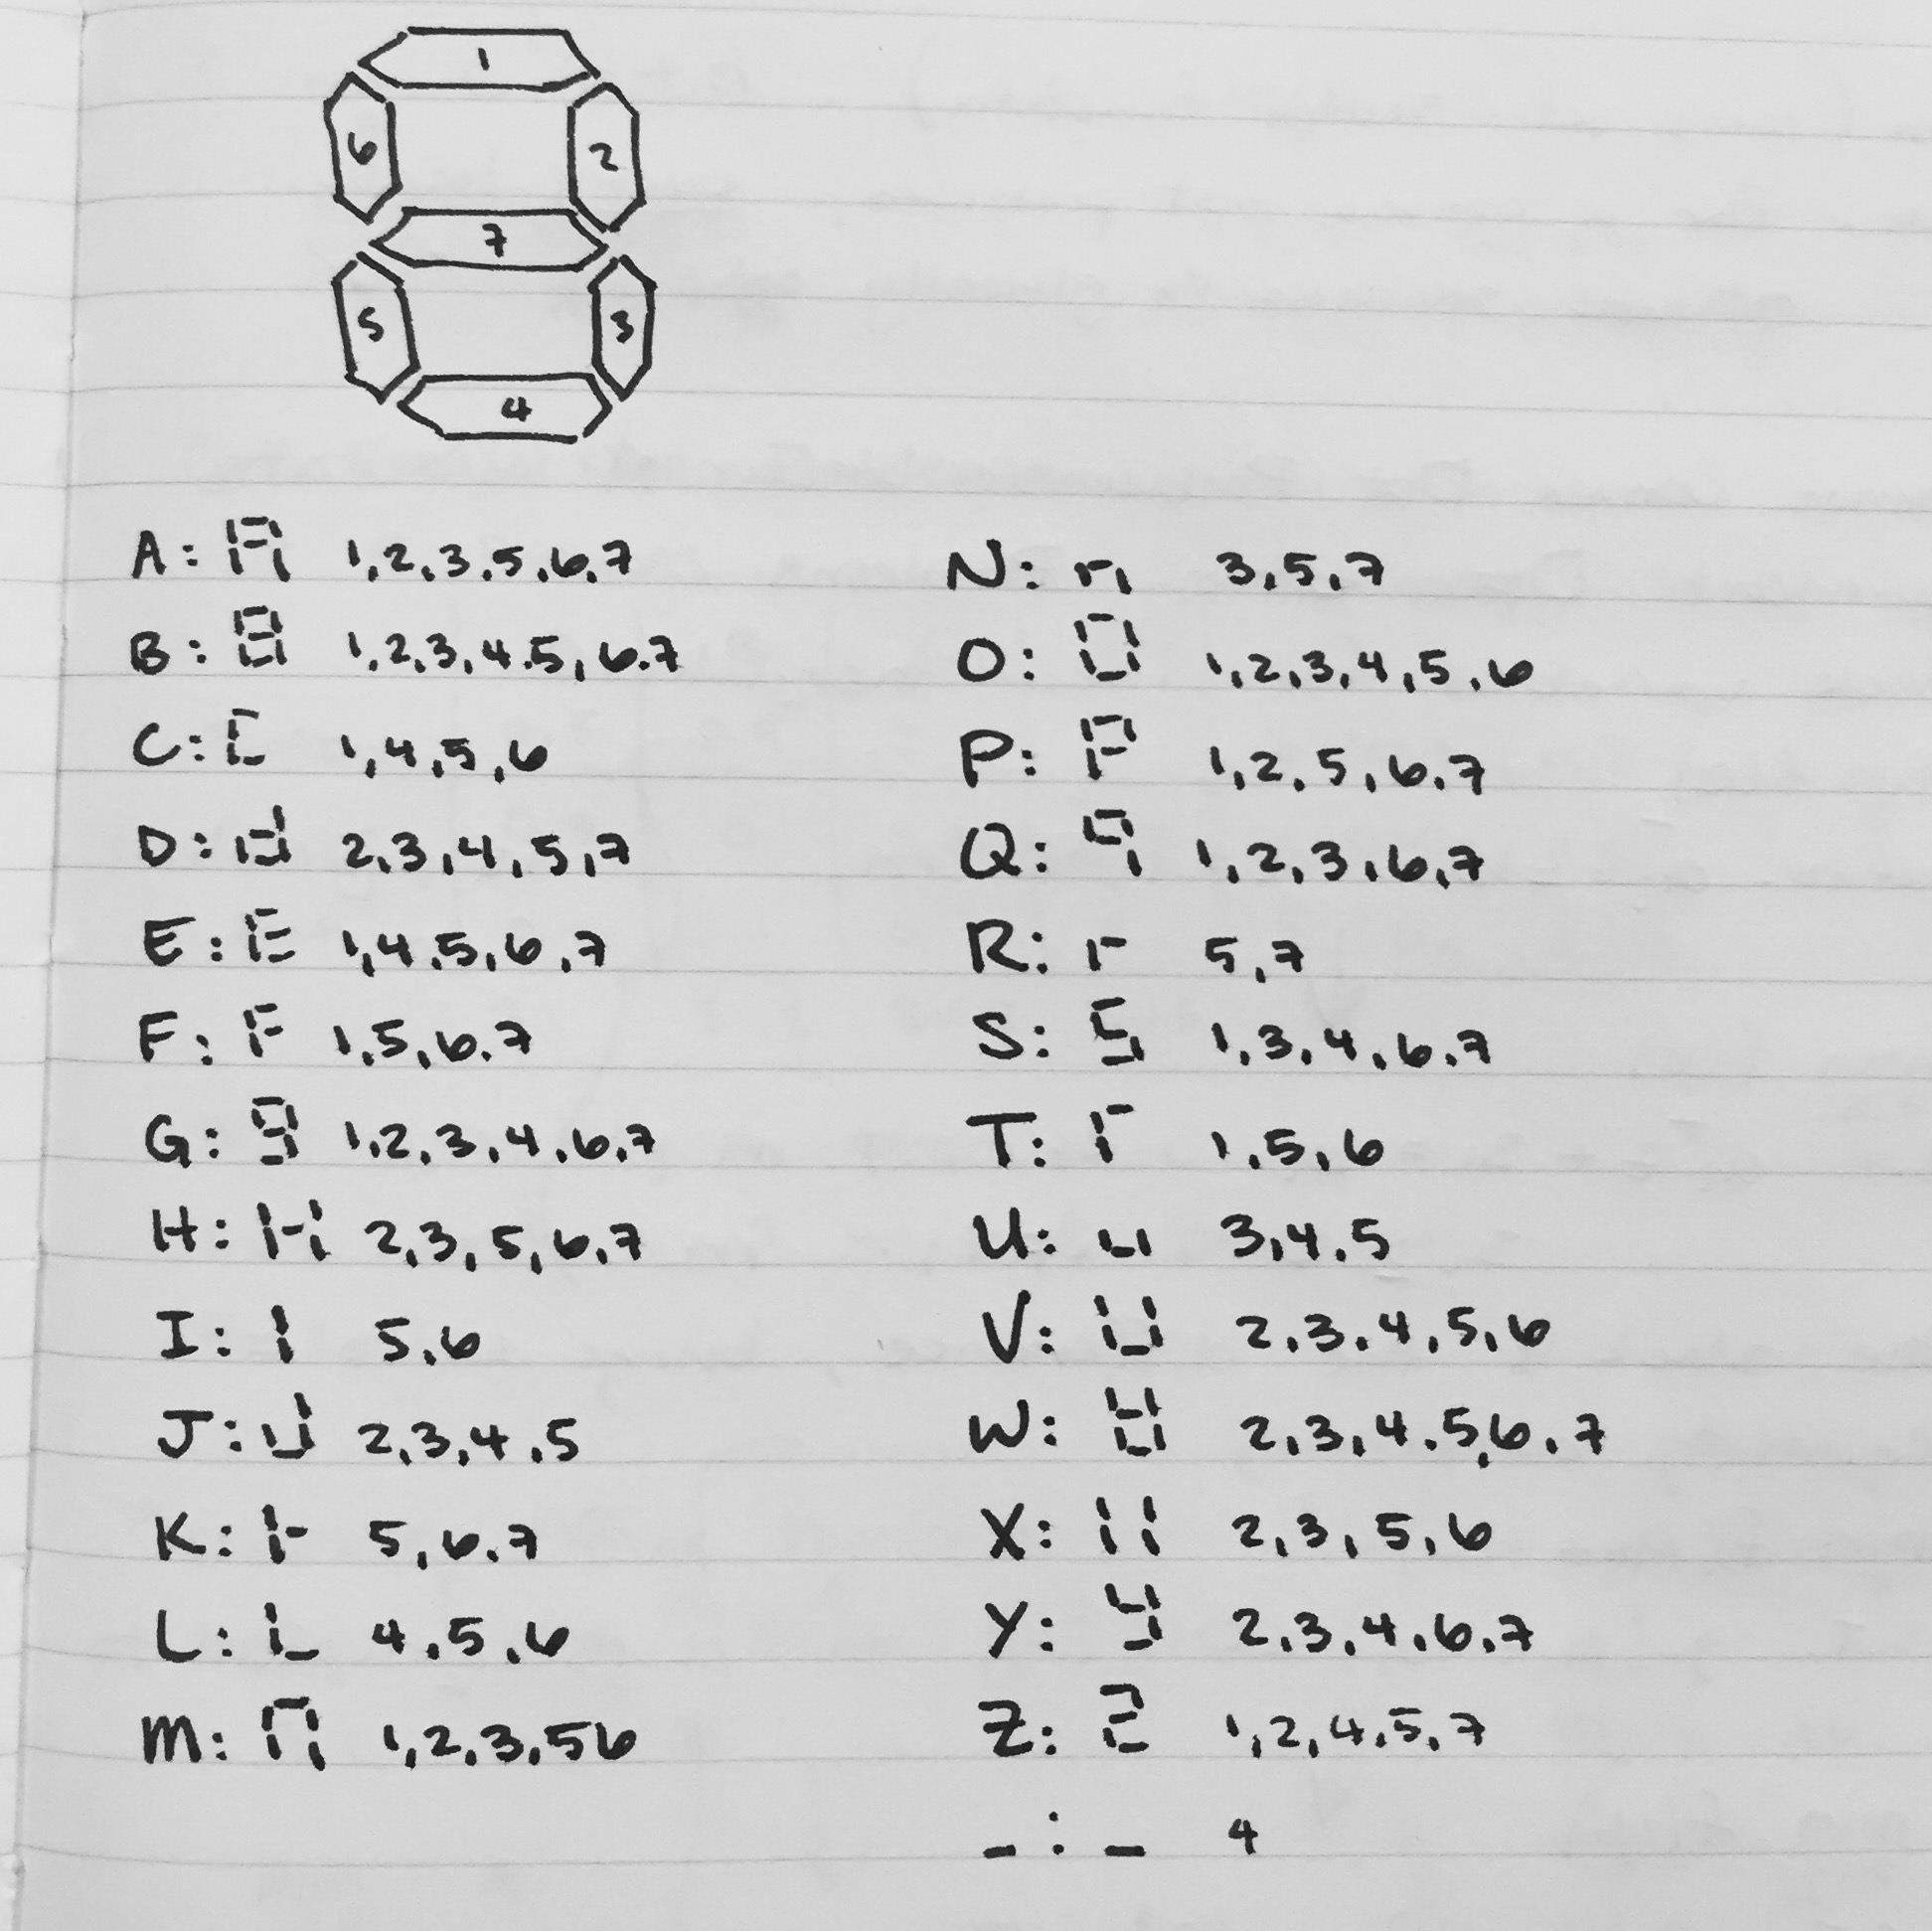 1
6
2
7
5
3
4
A: 1,2,3,5,6,7
B: 1,2,3,4.5,6.7
C: 1,4,5,6
D: 2,3,4,5,7
E: 1,4.5,6,7
F: 1,5,6.7
G: 1,2,3,4,6,7
H: 2,3,5,6,7
I: 5,6
J: 2,3,4,5
K: 5,6,7
L: 4,5,6
M: 1,2,3,56
N: 3,5,7
O: 1,2,3,4,5,6
P: 1,2,5,6,7
Q: 1,2,3,6,7
R: 5,7
S: 1,3,4,6,7
T: 1,5,6
U: 3,4,5
V: 2,3,4,5,6
W: 2,3,4,5,6,7
X: 2,3,5,6
Y: 2,3,4,6,7
Z: 1,2,4,5,7
_: _ 4